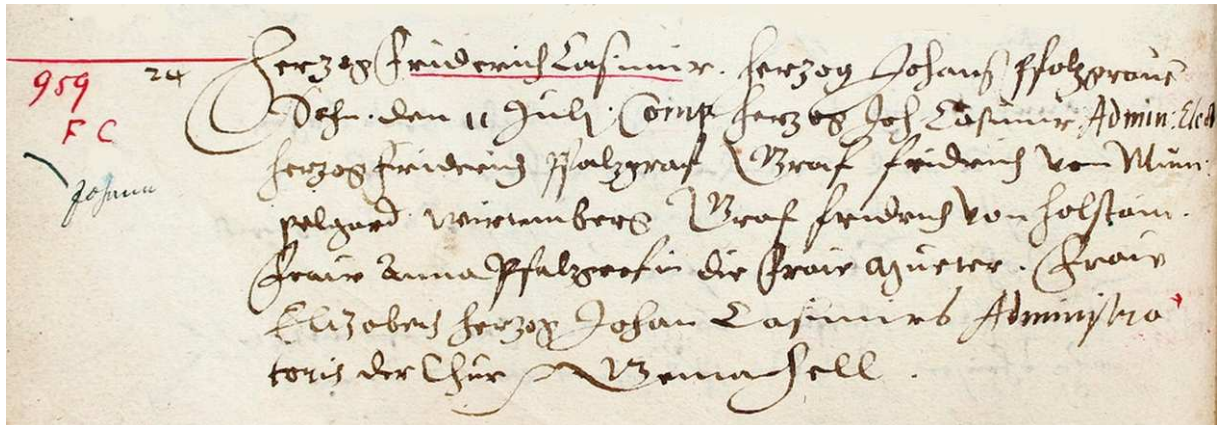 959
F C
Johann
24 Herzog Friderich Casimir. Herzog Johanß Pfalzgraue
Sohn. den 11 Julj. Comp Herzog Joh Casimir Admin: Elect
Herzog Friderich Pfalzgraf Graf fridrich von Mum:
pelgard. Wirtemberg Graf fridrich von Holstain.
Fraw Anna Pfalzgrefin die fraw Mueter. Fraw
Elizabeth Herzog Johan Casimirs Administra
toris der Chur Gemahell.